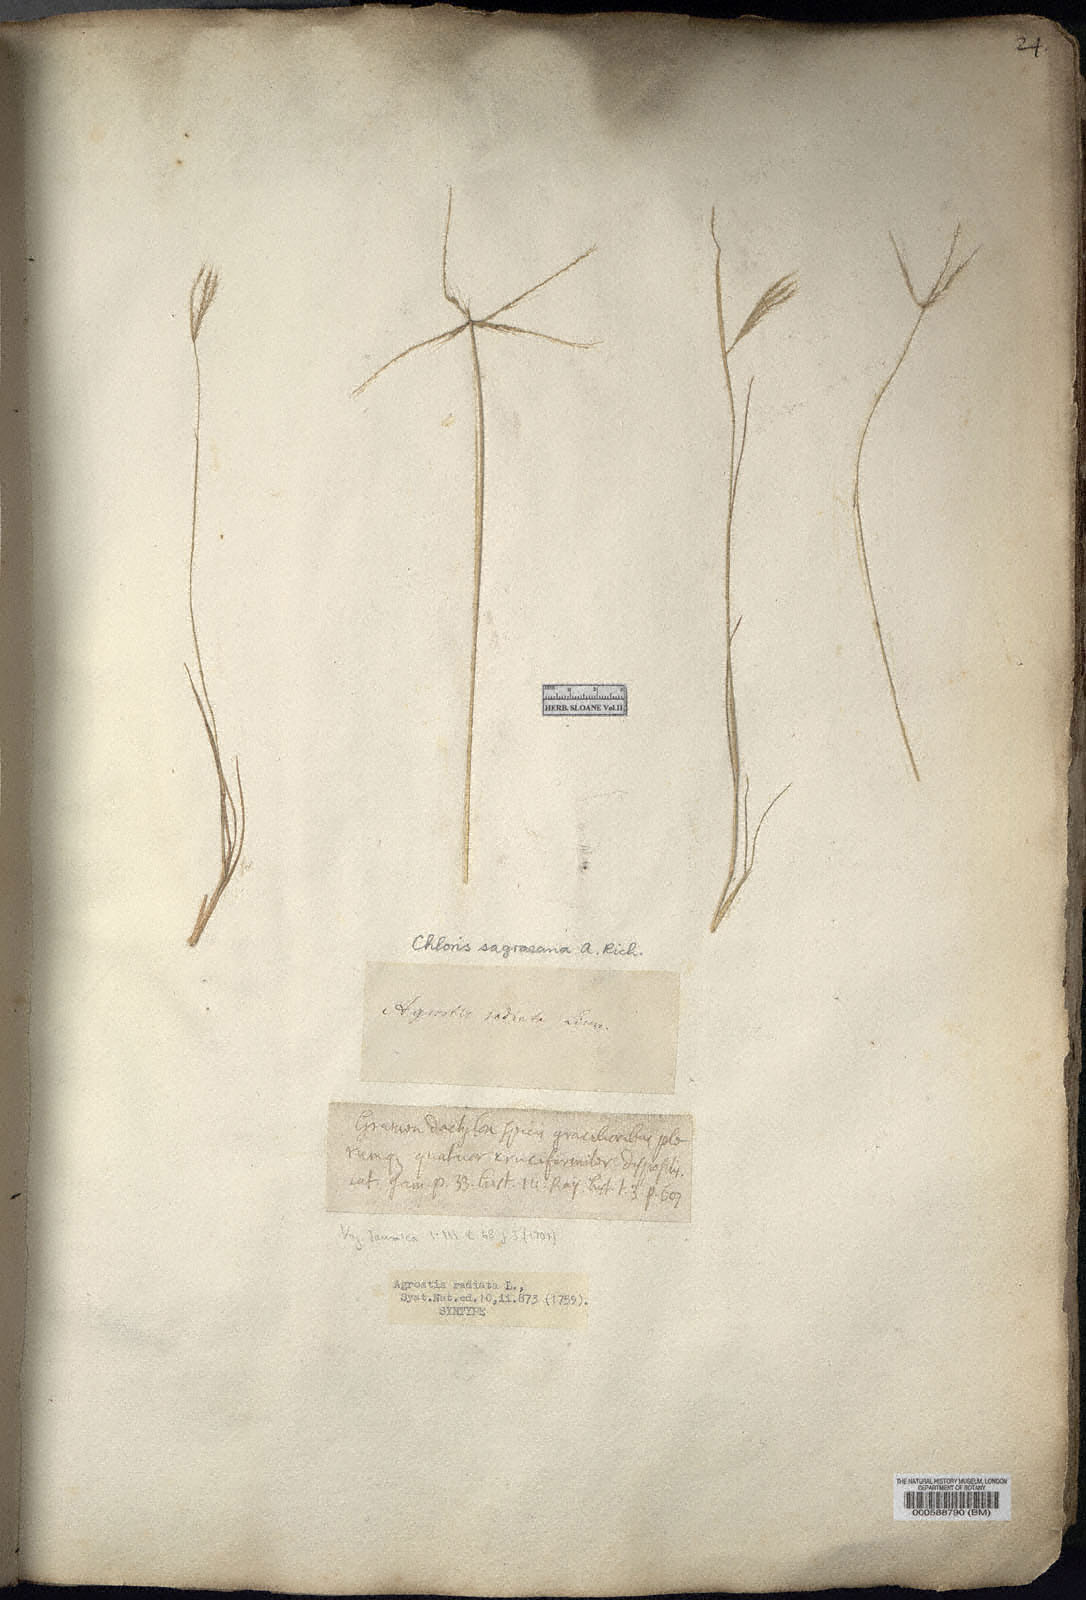 24.
HERB. SLOANE Vol.II.
Chloris sagraeana A. Rich.
Agrostis radiata Linn.
Gramen dactylon spicis gracilioribus ple-
rumq; quatuor cruciformiter dispositis.
cat. Jam. p. 33. hist. 111. Ray hist. t. 3. p. 609
Voy. Jamaica 1. 111 t. 68 f. 3 (1707)
Agrostis radiata L.,
Syst.Nat.ed.10,ii.873 (1759).
SYNTYPE
THE NATURAL HISTORY MUSEUM, LONDON
DEPARTMENT OF BOTANY
000588790 (BM)